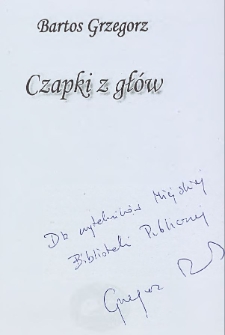 Bartos Grzegorz
Czapki z głów
Dla czytelników Miejskiej
Biblioteki Publicznej
Grzegorz